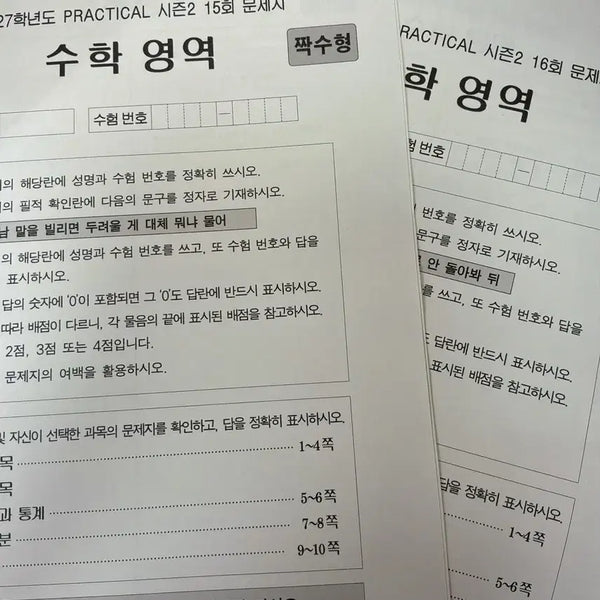 27학년도 PRACTICAL 시즌2 15회 문제지
수학 영역
짝수형
수험 번호
–
의 해당란에 성명과 수험 번호를 정확히 쓰시오.
의 필적 확인란에 다음의 문구를 정자로 기재하시오.
남 말을 빌리면 두려울 게 대체 뭐냐 물어
의 해당란에 성명과 수험 번호를 쓰고, 또 수험 번호와 답을
표시하시오.
답의 숫자에 '0'이 포함되면 그 '0'도 답란에 반드시 표시하시오.
따라 배점이 다르니, 각 물음의 끝에 표시된 배점을 참고하시오.
2점, 3점 또는 4점입니다.
문제지의 여백을 활용하시오.
및 자신이 선택한 과목의 문제지를 확인하고, 답을 정확히 표시하시오.
목 1~4쪽
목
과 통계 5~6쪽
분 7~8쪽
9~10쪽
RACTICAL 시즌2 16회 문제
학 영역
험 번호
–
번호를 정확히 쓰시오.
문구를 정자로 기재하시오.
안 돌아봐 뒤
를 쓰고, 또 수험 번호와 답을
답란에 반드시 표시하시오.
표시된 배점을 참고하시오.
답을 정확히 표시하시오.
1~4쪽
5~6쪽